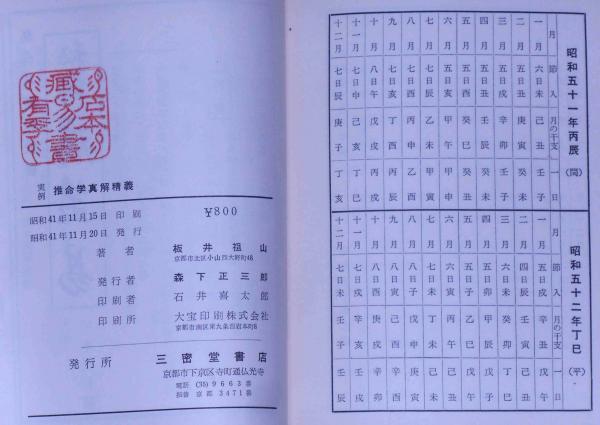 昭和五十一年丙辰（閏）
月 節入 月の干支 一日
一月 六日未 己丑 壬子
二月 五日丑 庚寅 癸未
三月 五日戌 辛卯 壬子
四月 五日子 壬辰 癸未
五月 五日酉 癸巳 癸丑
六月 五日亥 甲午 甲申
七月 七日辰 乙未 甲寅
八月 七日酉 丙申 乙酉
九月 七日亥 丁酉 丙辰
十月 八日午 戊戌 丙戌
十一月 七日申 己亥 丁巳
十二月 七日辰 庚子 丁亥
昭和五十二年丁巳（平）
月 節入 月の干支 一日
一月 五日戌 辛丑 戊午
二月 四日辰 壬寅 己丑
三月 六日丑 癸卯 丁巳
四月 五日卯 甲辰 戊子
五月 乙巳 戊午
六月 六日 丙午 己丑
七月 七日 丁未 己未
八月 八日 戊申 庚寅
九月 八日寅 己酉 辛酉
十月 八日酉 庚戌 辛卯
十一月 七日戌 辛亥 壬戌
十二月 七日未 壬子 壬辰
石本
藏易書
有季
実例 推命学真解精義
昭和41年11月15日 印刷 ¥800
昭和41年11月20日 発行
著者 板井祖山
京都市北区小山西大野町46
発行者 森下正三郎
印刷者 石井喜太郎
印刷所 大宝印刷株式会社
京都市南区東九条西岩本町8
発行所 三密堂書店
京都市下京区寺町通仏光寺
電話 (35) 9663番
振替 京都 3471番